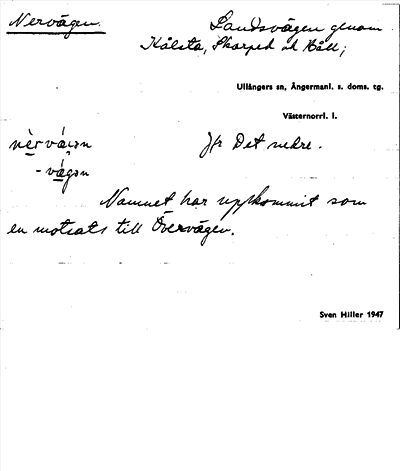 Nervägen.
Landsvägen genom
Kålsta, Skarped och Håll;
Ullångers sn, Ångermanl. s. doms. tg.
Västernorrl. l.
Jfr Det nedre.
Namnet har uppkommit som
en motsats till Övervägen.
Sven Hiller 1947